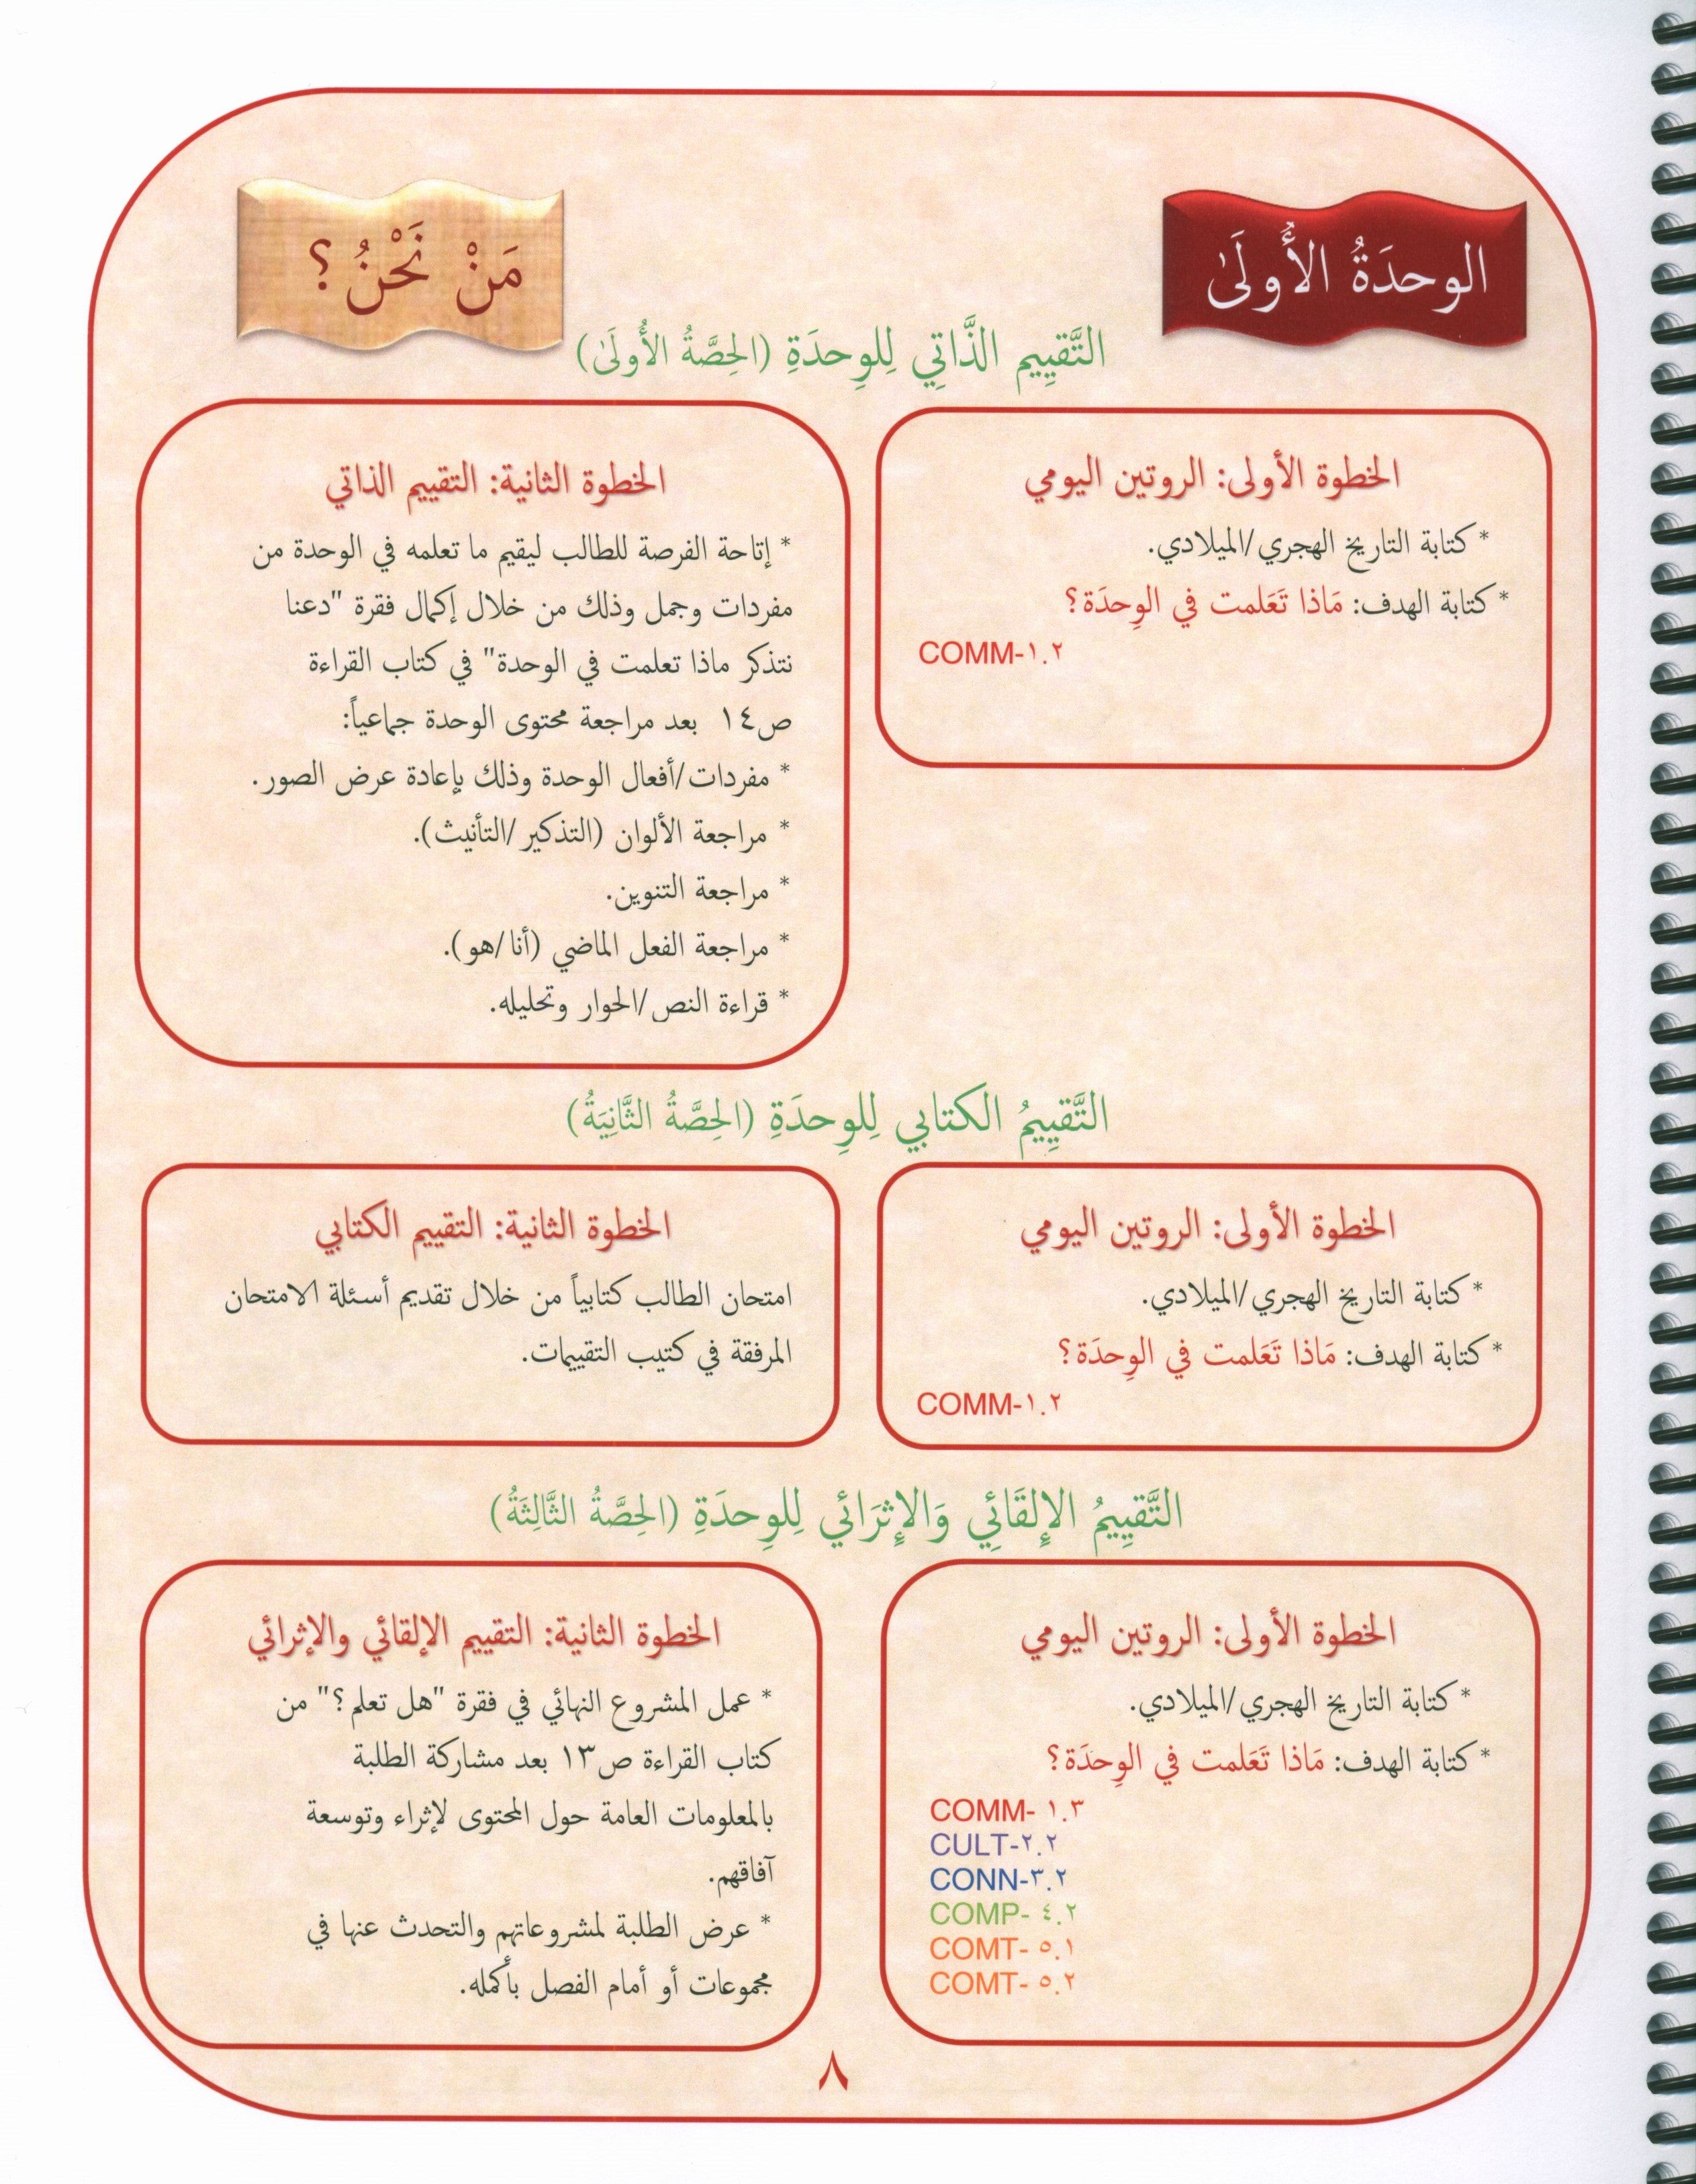 الوحدَةُ الأُولَىٰ
مَنْ نَحْنُ؟
التَّقيِيم الذَّاتِي لِلوِحدَةِ (الحِصَّةُ الأُولَىٰ)
الخطوة الأولى: الروتين اليومي
* كتابة التاريخ الهجري/الميلادي.
* كتابة الهدف: مَاذا تَعَلمت في الوِحدَة؟
COMM-١.٢
الخطوة الثانية: التقييم الذاتي
* إتاحة الفرصة للطالب ليقيم ما تعلمه في الوحدة من
مفردات وجمل وذلك من خلال إكمال فقرة "دعنا
نتذكر ماذا تعلمت في الوحدة" في كتاب القراءة
ص١٤ بعد مراجعة محتوى الوحدة جماعياً:
* مفردات/أفعال الوحدة وذلك بإعادة عرض الصور.
* مراجعة الألوان (التذكير/التأنيث).
* مراجعة التنوين.
* مراجعة الفعل الماضي (أنا/هو).
* قراءة النص/الحوار وتحليله.
التَّقيِيمُ الكتابي لِلوِحدَةِ (الحِصَّةُ الثَّانِيَةُ)
الخطوة الأولى: الروتين اليومي
* كتابة التاريخ الهجري/الميلادي.
* كتابة الهدف: مَاذا تَعَلمت في الوِحدَة؟
COMM-١.٢
الخطوة الثانية: التقييم الكتابي
امتحان الطالب كتابياً من خلال تقديم أسئلة الامتحان
المرفقة في كتيب التقييمات.
التَّقيِيمُ الإِلقَائِي وَالإِثرَائي لِلوِحدَةِ (الحِصَّةُ الثَّالِثَةُ)
الخطوة الأولى: الروتين اليومي
* كتابة التاريخ الهجري/الميلادي.
* كتابة الهدف: مَاذا تَعَلمت في الوِحدَة؟
COMM- ١.٣
CULT-٢.٢
CONN-٣.٢
COMP- ٤.٢
COMT- ٥.١
COMT- ٥.٢
الخطوة الثانية: التقييم الإلقائي والإثرائي
* عمل المشروع النهائي في فقرة "هل تعلم؟" من
كتاب القراءة ص١٣ بعد مشاركة الطلبة
بالمعلومات العامة حول المحتوى لإثراء وتوسعة
آفاقهم.
* عرض الطلبة لمشروعاتهم والتحدث عنها في
مجموعات أو أمام الفصل بأكمله.
٨